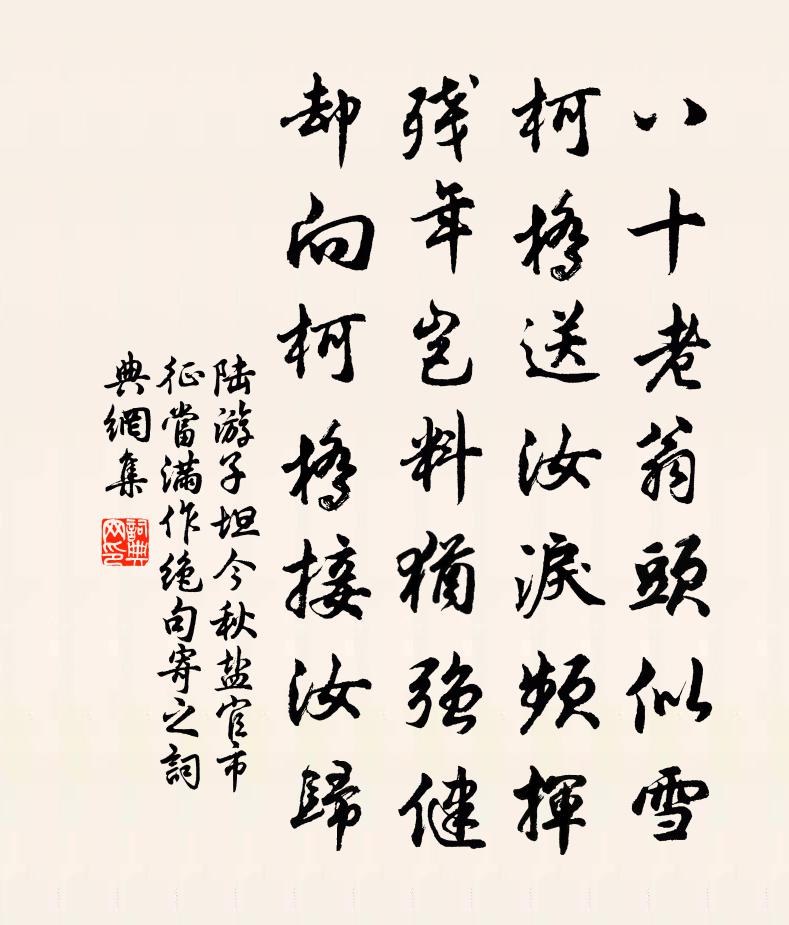 八十老翁頭似雪
柯橋送汝淚頻揮
殘年豈料猶強健
却向柯橋接汝歸
陆游子坦今秋盐官市
征當滿作絶句寄之詞
典網集
詞典网印